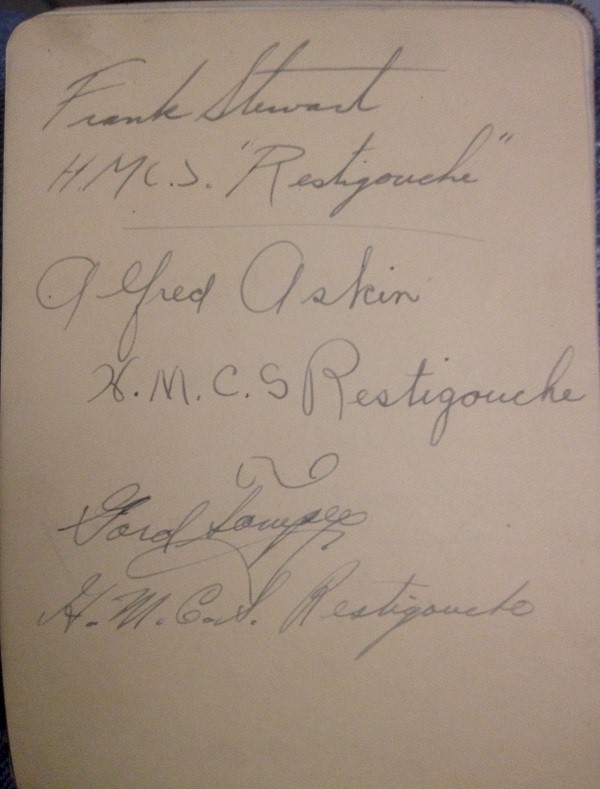 Frank Stewart
H.M.C.S. "Restigouche"
Alfred Askin
H.M.C.S Restigouche
Gord
H.M.C.S. Restigouche